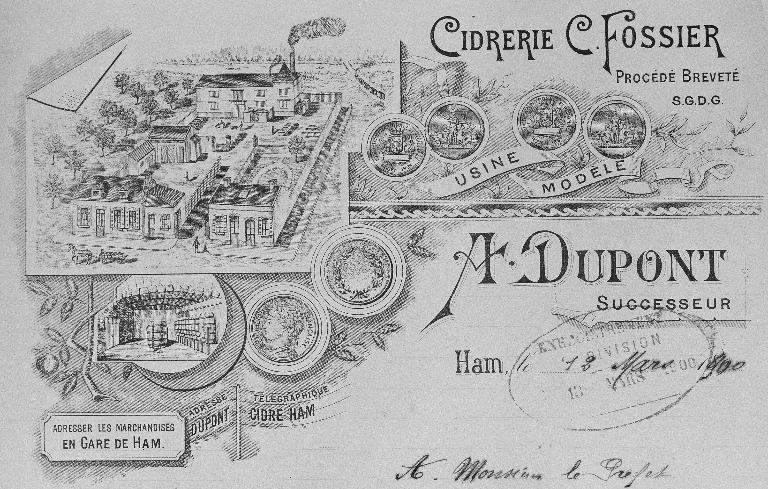 CIDRERIE C. FOSSIER
PROCÉDÉ BREVETÉ
S.G.D.G.
USINE MODÈLE
A. DUPONT
SUCCESSEUR
Ham, le 13 Mars 1900
DIVISION
13 MARS 1900
ADRESSER LES MARCHANDISES
EN GARE DE HAM.
ADRESSE TÉLÉGRAPHIQUE
DUPONT CIDRE HAM
A Monsieur le Prefet